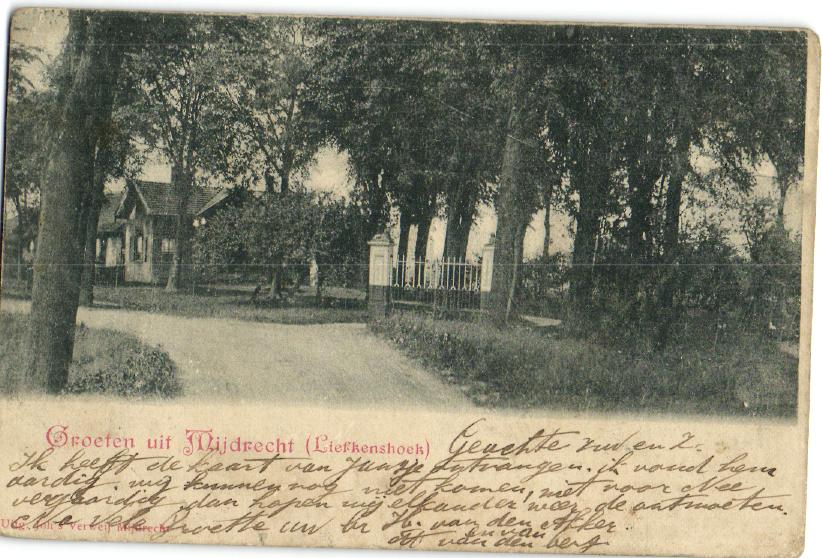 Groeten uit Mijdrecht (Liefkenshoek)
Geachte zuv en z.
Ik heeft de kaart van Jaapje ontvangen. ik vond hem
aardig. wij kunnen nog niet komen, niet voor Nee
verjaardig dan hopen wij elkander weer de ontmoeten.
Groette uw br H. van den Akker
en van
van den berg
Uitg. Joh's Verweij Mijdrecht